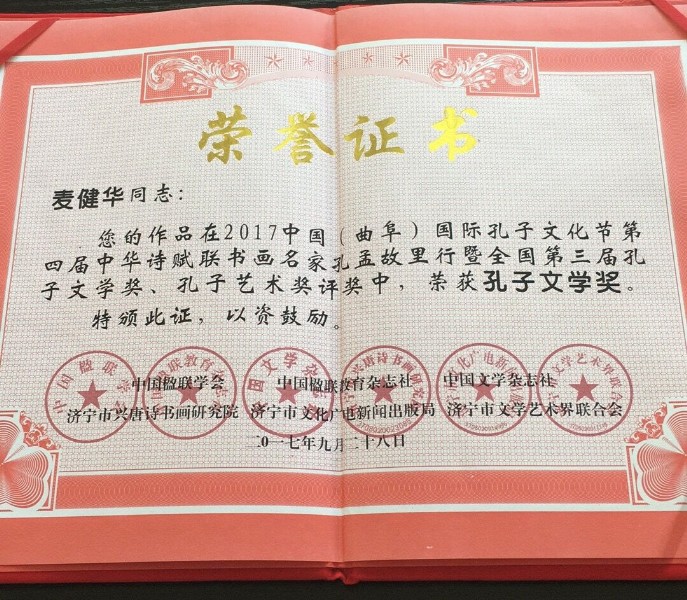 荣誉证书
麦健华同志：
您的作品在2017中国（曲阜）国际孔子文化节第
四届中华诗赋联书画名家孔孟故里行暨全国第三届孔
子文学奖、孔子艺术奖评奖中，荣获孔子文学奖。
特颁此证，以资鼓励。
中国楹联学会 中国楹联教育杂志社 中国文学杂志社
济宁市兴唐诗书画研究院 济宁市文化广电新闻出版局 济宁市文学艺术界联合会
二〇一七年九月二十八日